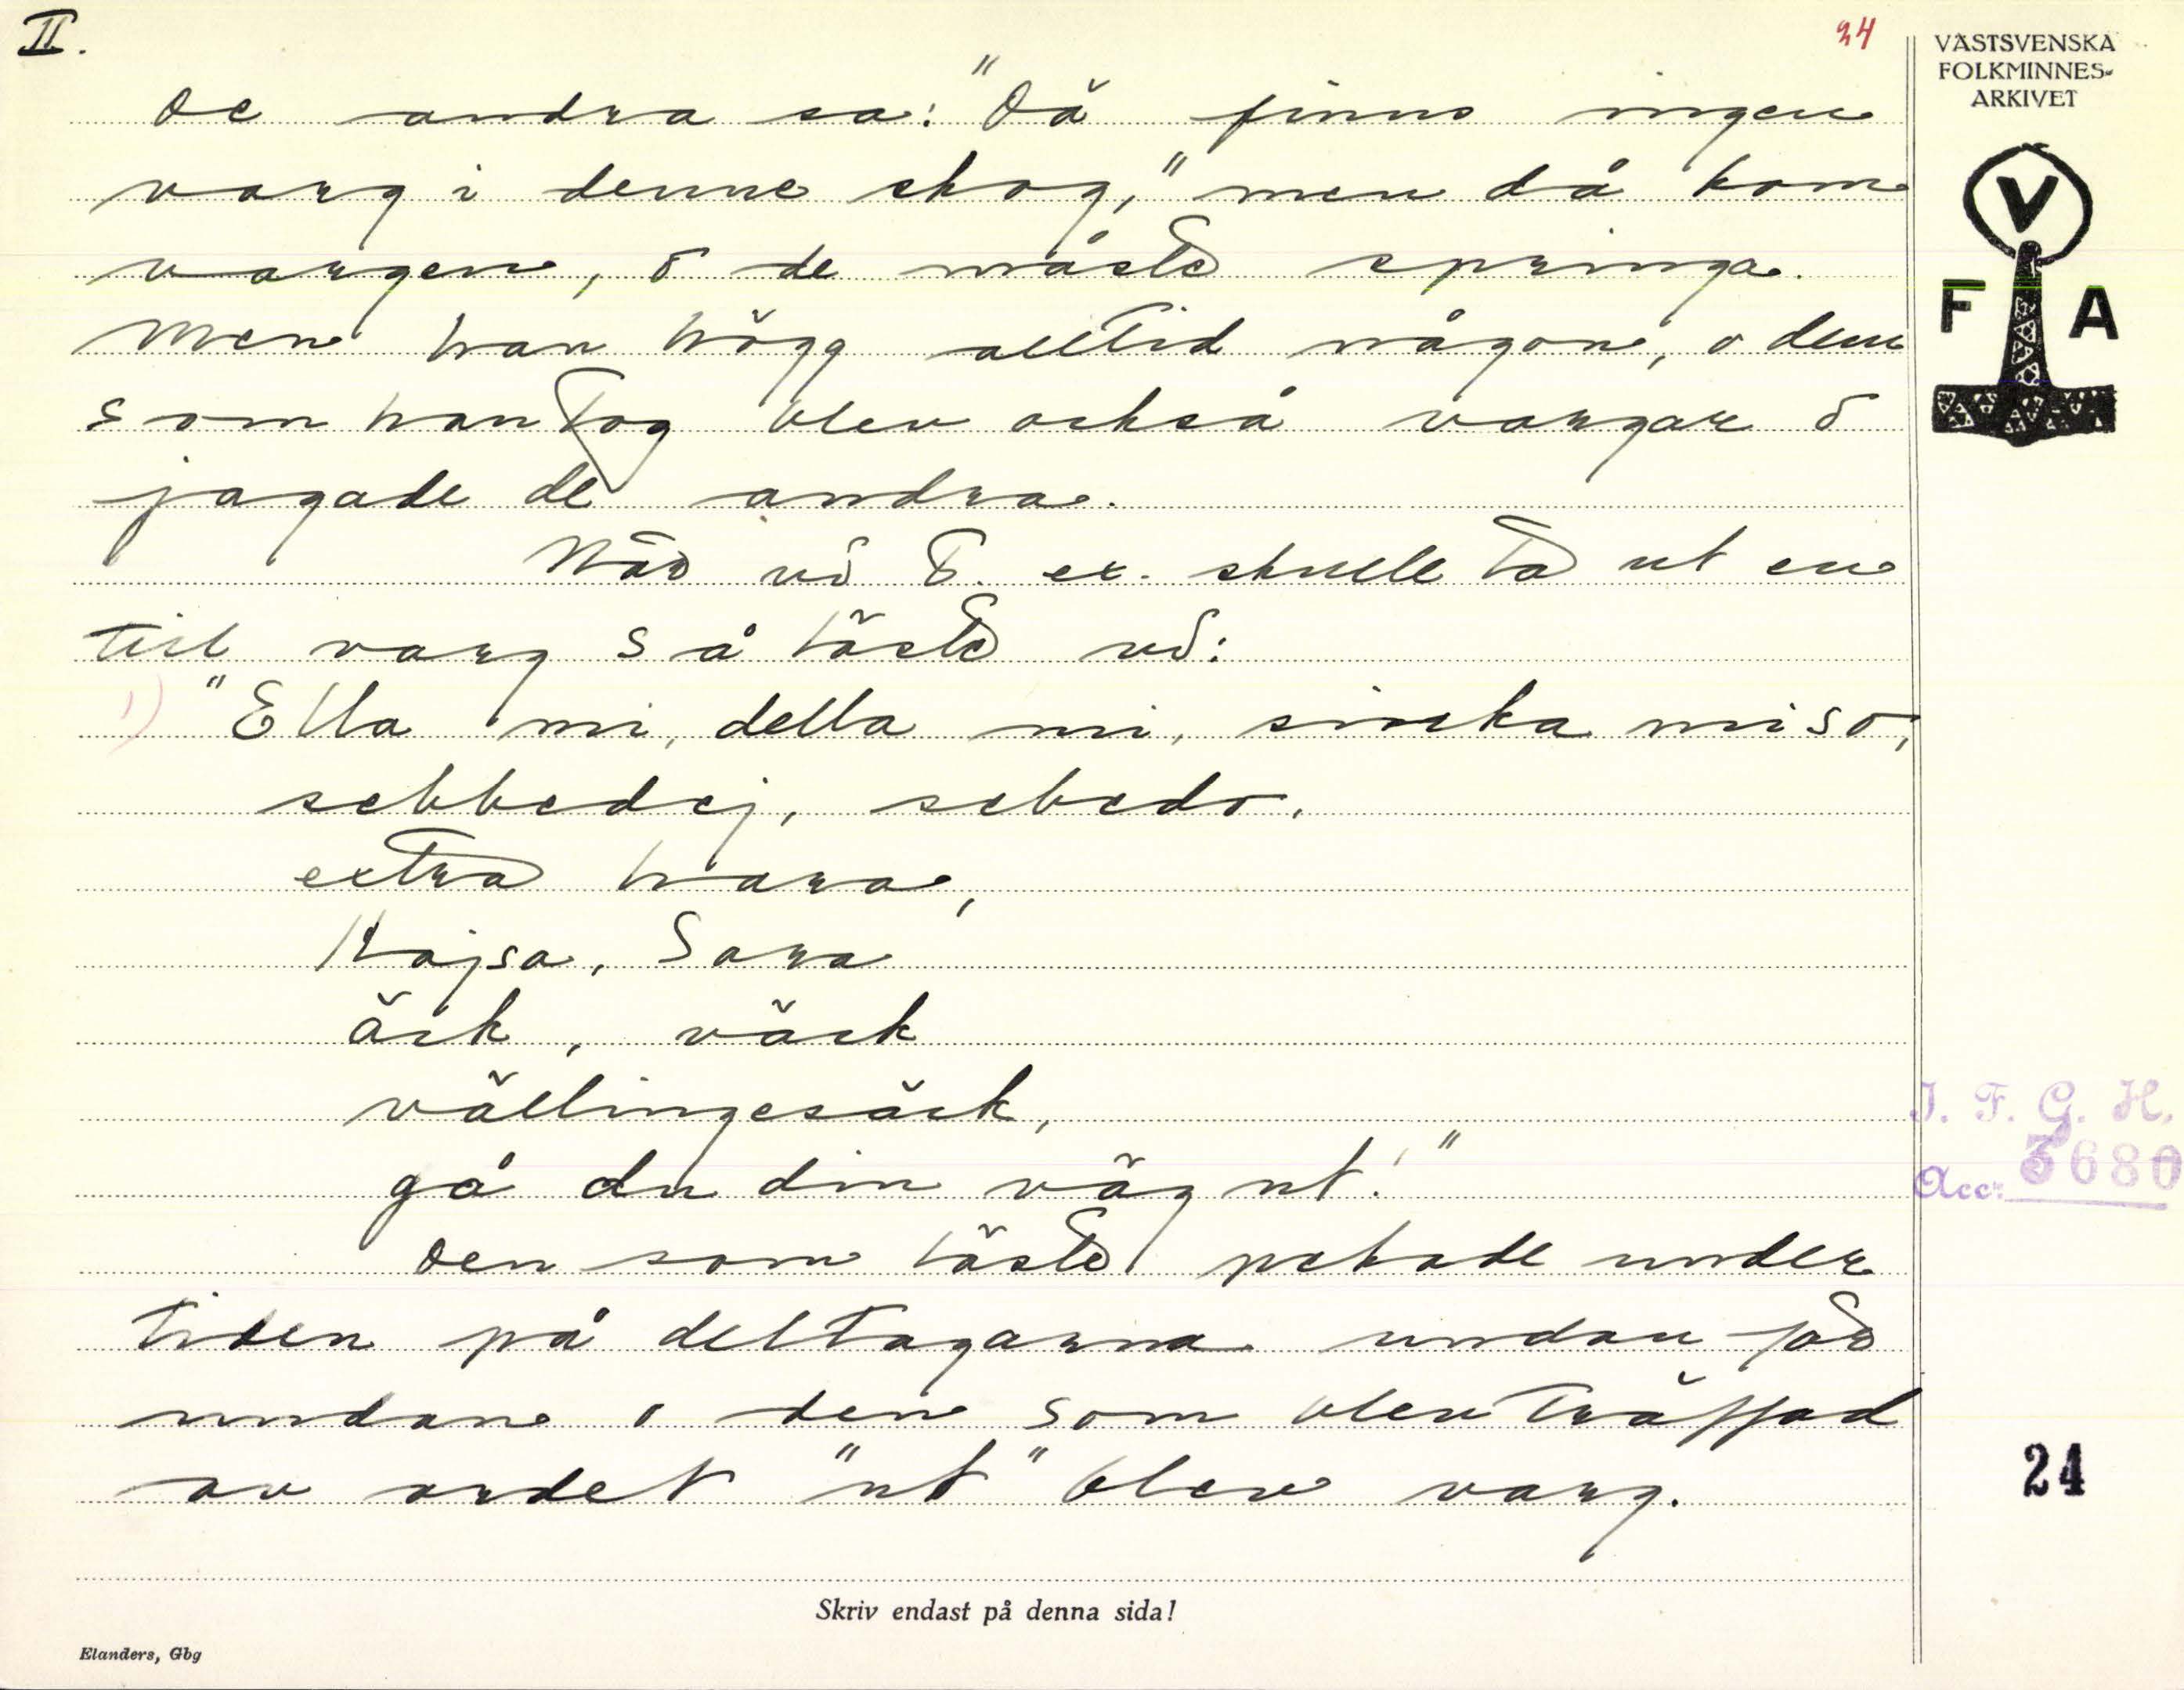 II.
24
VÄSTSVENSKA
FOLKMINNES-
ARKIVET
V
F A
De andra sa: "Dä finns ingen
varg i denne skog," men då kom
vargen, o de måste springa.
Men han högg alltid någon, o den
som han tog blev också vargar o
jagade de andra.
När vi t. ex. skulle ta ut en
till varg så läste vi:
1) "Ella mi, della mi, sincka miso,
sebbedej, sebedo,
extra hara,
Kajsa, Sara
äck, väck
vällingesäck,
gå du din väg ut!"
Den som läste pekade under
tiden på deltagarna undan för
undan o den som blev träffad
av ordet "ut" blev varg.
I. F. G. H.
Acc: 3680
24
Skriv endast på denna sida!
Elanders, Gbg